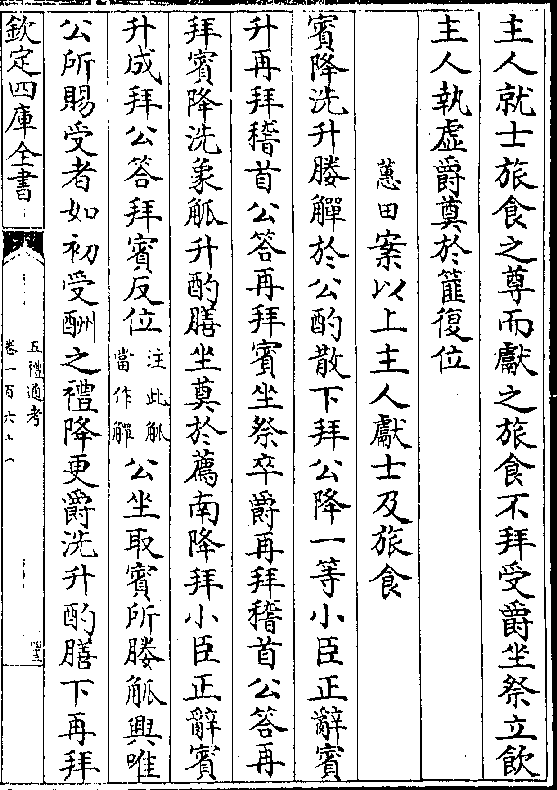 主人就士旅食之尊而獻之旅食不拜受爵坐祭立飲
主人執虛爵奠於篚復位
蕙田案以上主人獻士及旅食
賓降洗升媵觶於公酌散下拜公降一等小臣正辭賓
升再拜稽首公答再拜賓坐祭卒爵再拜稽首公答再
拜賓降洗象觚升酌膳坐奠於薦南降拜小臣正辭賓
升成拜公答拜賓反位注此觚當作觶公坐取賓所媵觚興唯
公所賜受者如初受酬之禮降更爵洗升酌膳下再拜
欽定四庫全書
五禮通考
卷一百六十